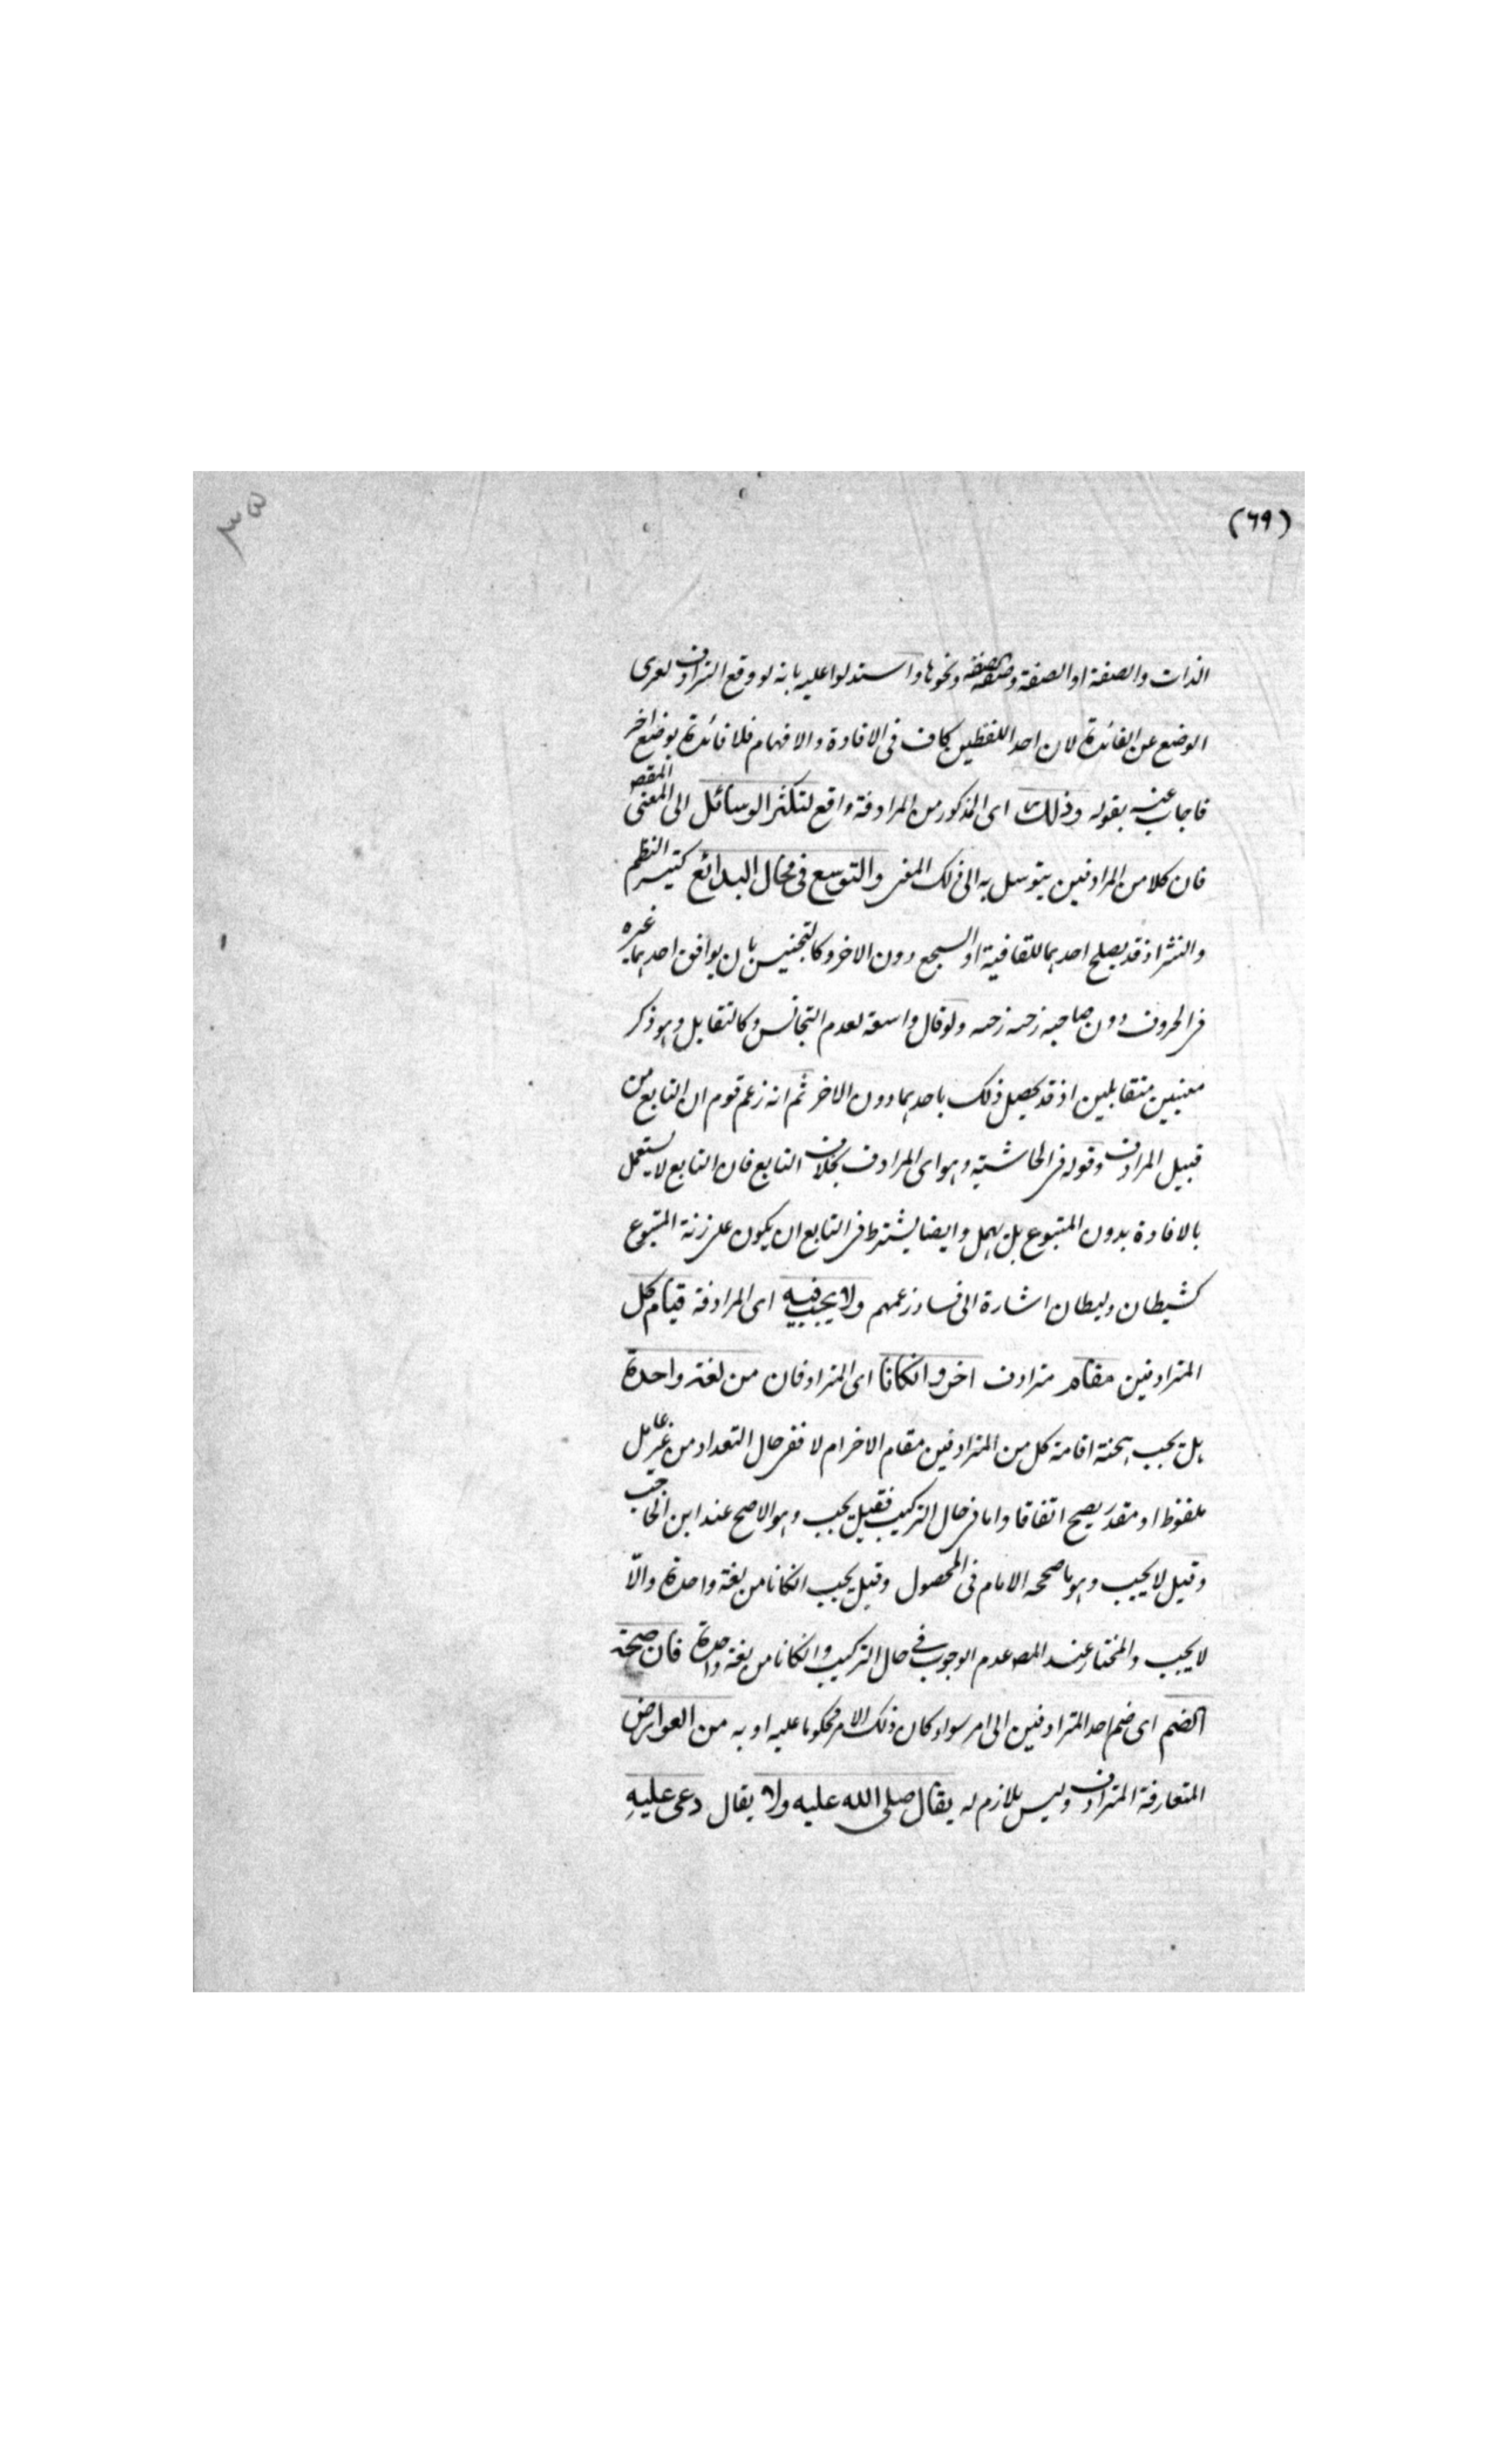 (٦٩)
٣٥
الذات والصفة او الصفة وصفة الصفة ونحوها واستدلوا عليه بانه لو وقع الترادف لعرى
الوضع عن الفائدة لان احد اللفظين كاف فى الافادة والافهام فلا فائدة بوضع اخر
فاجاب عنه بقوله وذلك اى المذكور من المرادفة واقع لتكثر الوسائل الى المعنى المقص
فان كلا من المرادفين يتوسل به الى ذلك المعنى والتوسع فى محال البدائع كتيسر النظم
والنثر اذ قد يصلح احدهما للقافية او السجع دون الاخر وكالتجنيس بان يوافق احدهما غيره
فى الحروف دون صاحبه رحبة رحبة ولو قال واسعة لعدم التجانس وكالتقابل وهو ذكر
معنيين متقابلين اذ قد يحصل ذلك باحدهما دون الاخر ثم انه زعم قوم ان التابع من
قبيل المرادف وقوله فى الحاشية وهو اى المرادف بخلاف التابع فان التابع لا يستعمل
بالافادة بدون المتبوع بل يهمل وايضا يشترط فى التابع ان يكون على زنة المتبوع
كشيطان وليطان اشارة الى فساد زعمهم ولا يجب فيه اى المرادفة قيام كل
المترادفين مقام مترادف اخر وانكانا اى المترادفان من لغة واحدة
بل يجب صحة اقامة كل من المترادفين مقام الاخر ام لا ففى حال التعداد من غير عامل
ملفوظ او مقدر يصح اتفاقا واما فى حال التركيب فقيل يجب وهو الاصح عند ابن الحاجب
وقيل لا يجب وهو ما صححه الامام فى المحصول وقيل يجب انكانا من لغة واحدة والّا
لا يجب والمختار عند المص عدم الوجوب فى حال التركيب وانكانا من لغة واحدة فان صحة
الضم اى ضم احد المترادفين الى امر سواء كان ذلك الامر محكوما عليه او به من العوارض
المتعارفة المترادف وليس بلازم له يقال صلى الله عليه ولا يقال دعى عليه